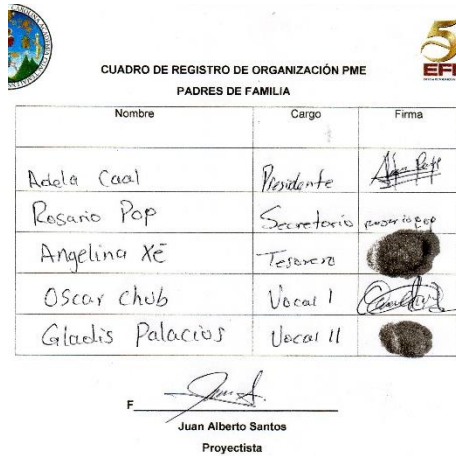 CUADRO DE REGISTRO DE ORGANIZACIÓN PME
PADRES DE FAMILIA
Nombre Cargo Firma
Adela Caal Presidente
Rosario Pop Secretario rosario pop
Angelina Xé Tesorero
Oscar Chub Vocal I
Gladis Palacios Vocal II
F
Juan Alberto Santos
Proyectista